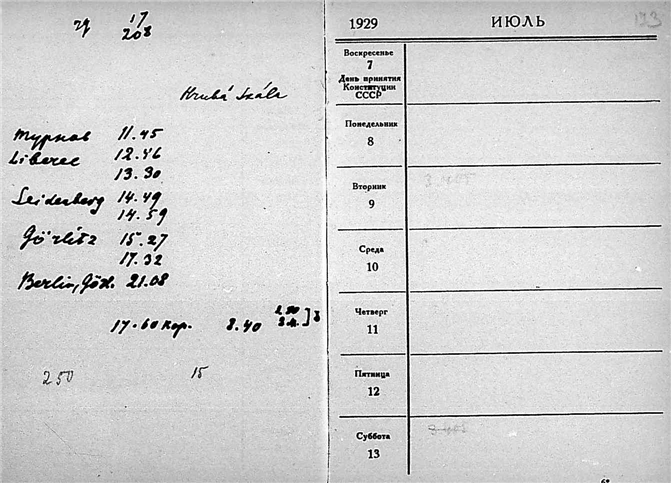 17
208
Hrubá Skála
Турнов 11.45
Liberec 12.46
13.30
Seidenberg 14.49
14.59
Görlitz 15.27
17.32
Berlin, Görl. 21.08
17.60 кор. 8.40
2.50
250 15
1929 ИЮЛЬ
173
Воскресенье
7
День принятия
Конституции
СССР
Понедельник
8
Вторник
9
Среда
10
Четверг
11
Пятница
12
Суббота
13